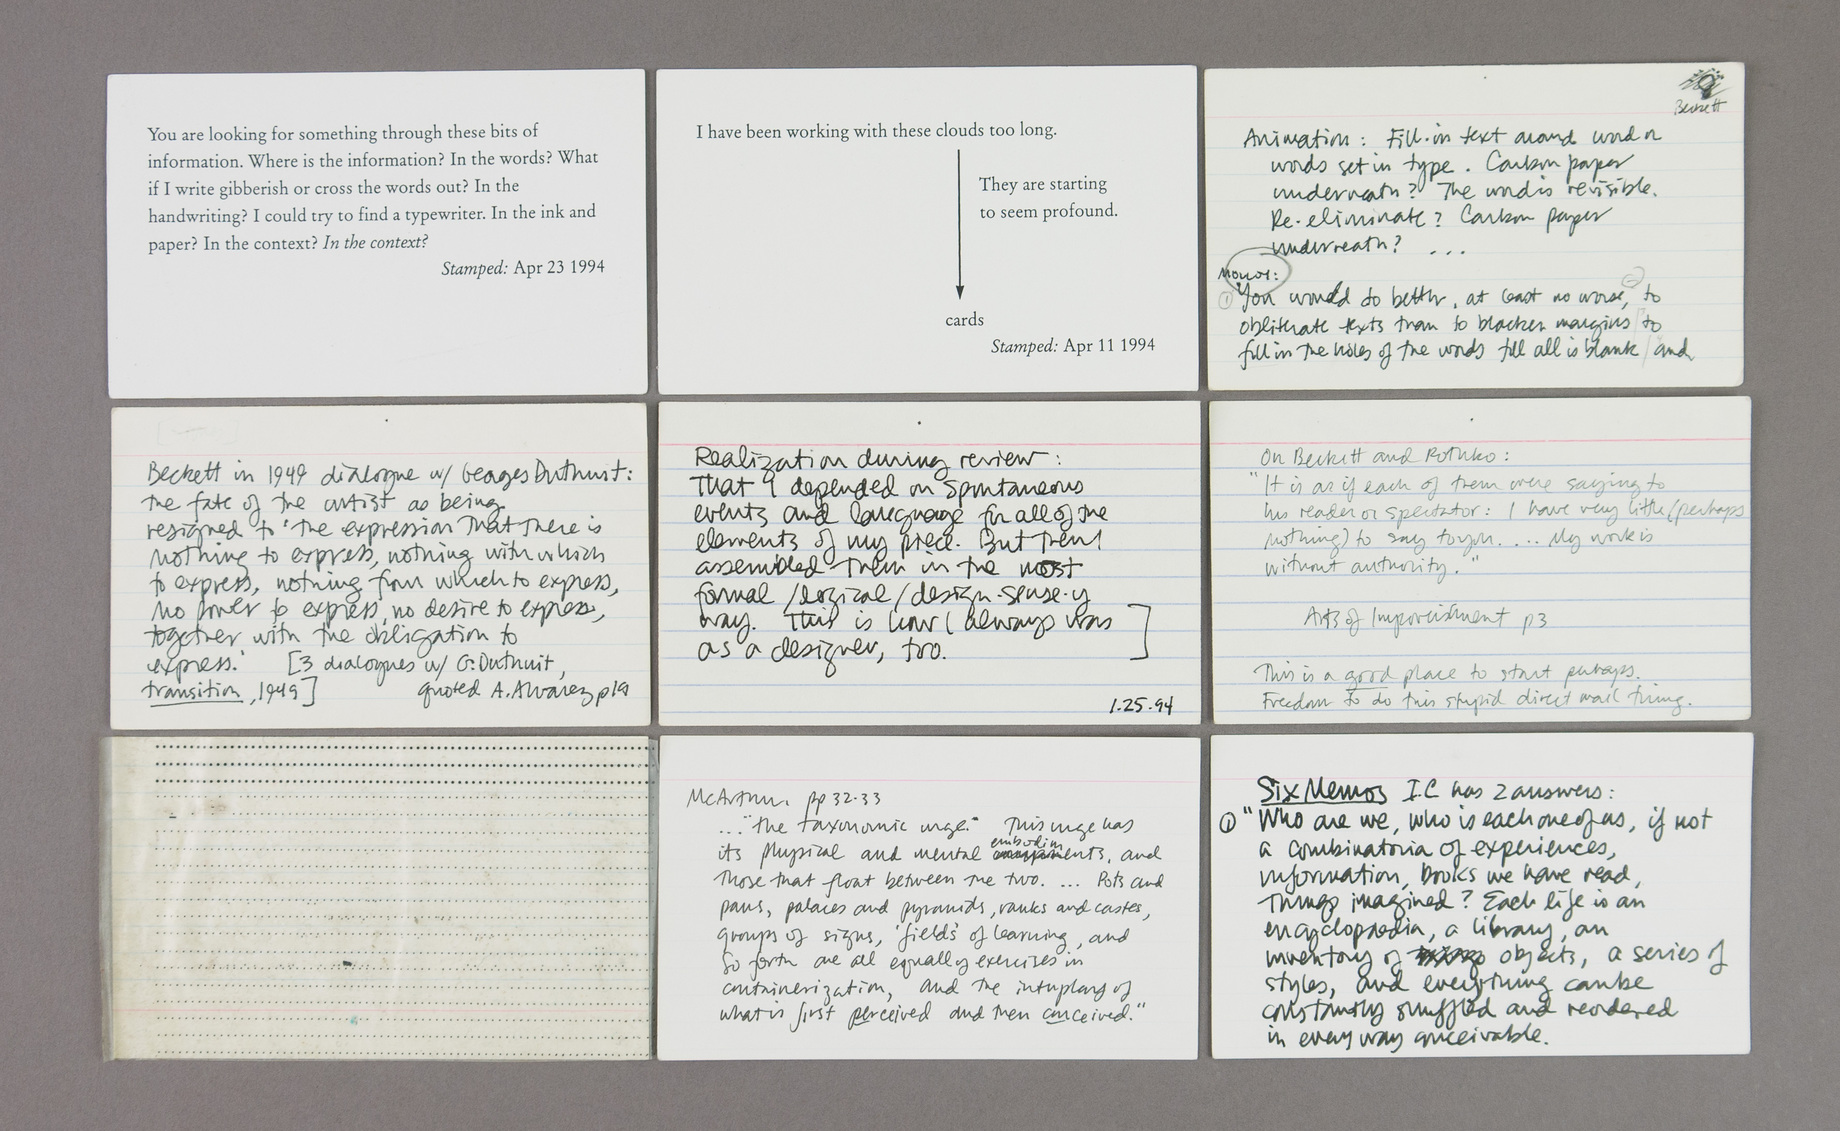 You are looking for something through these bits of
information. Where is the information? In the words? What
if I write gibberish or cross the words out? In the
handwriting? I could try to find a typewriter. In the ink and
paper? In the context? In the context?
Stamped: Apr 23 1994
I have been working with these clouds too long.
They are starting
to seem profound.
cards
Stamped: Apr 11 1994
Beckett
Animation: Fill-in text around word or
words set in type. Carbon paper
underneath? The word is revisible.
Re-eliminate? Carbon paper
underneath? ...
① You would do better, at least no worse, to
obliterate texts than to blacken margins, to
fill in the holes of the words till all is blank and
Beckett in 1949 dialogue w/ Georges Duthuit:
the fate of the artist as being
resigned to "the expression that there is
nothing to express, nothing with which
to express, nothing from which to express,
no power to express, no desire to express,
together with the obligation to
express." [3 dialogues w/ G. Duthuit,
transition, 1949] quoted A. Alvarez p19
Realization during review:
That I depended on spontaneous
events and language for all of the
elements of my piece. But then I
assembled them in the most
formal/logical/design-sense-y
way. This is how I always was
as a designer, too.
1.25.94
On Beckett and Rothko:
"It is as if each of them were saying to
his reader or spectator: I have very little (perhaps
nothing) to say to you. ... My work is
without authority."
Arts of Impoverishment p3
This is a good place to start perhaps.
Freedom to do this stupid direct mail thing.
McArthur. pp 32-33
... "the taxonomic urge." This urge has
its physical and mental embodiments, and
those that float between the two. ... Pots and
pans, palaces and pyramids, ranks and castes,
groups of signs, 'fields' of learning, and
so forth are all equally exercises in
containerization, and the interplay of
what is first perceived and then conceived."
Six Memos I.C has 2 answers:
① "Who are we, who is each one of us, if not
a combinatoria of experiences,
information, books we have read,
things imagined? Each life is an
encyclopaedia, a library, an
inventory of objects, a series of
styles, and everything can be
constantly shuffled and reordered
in every way conceivable.